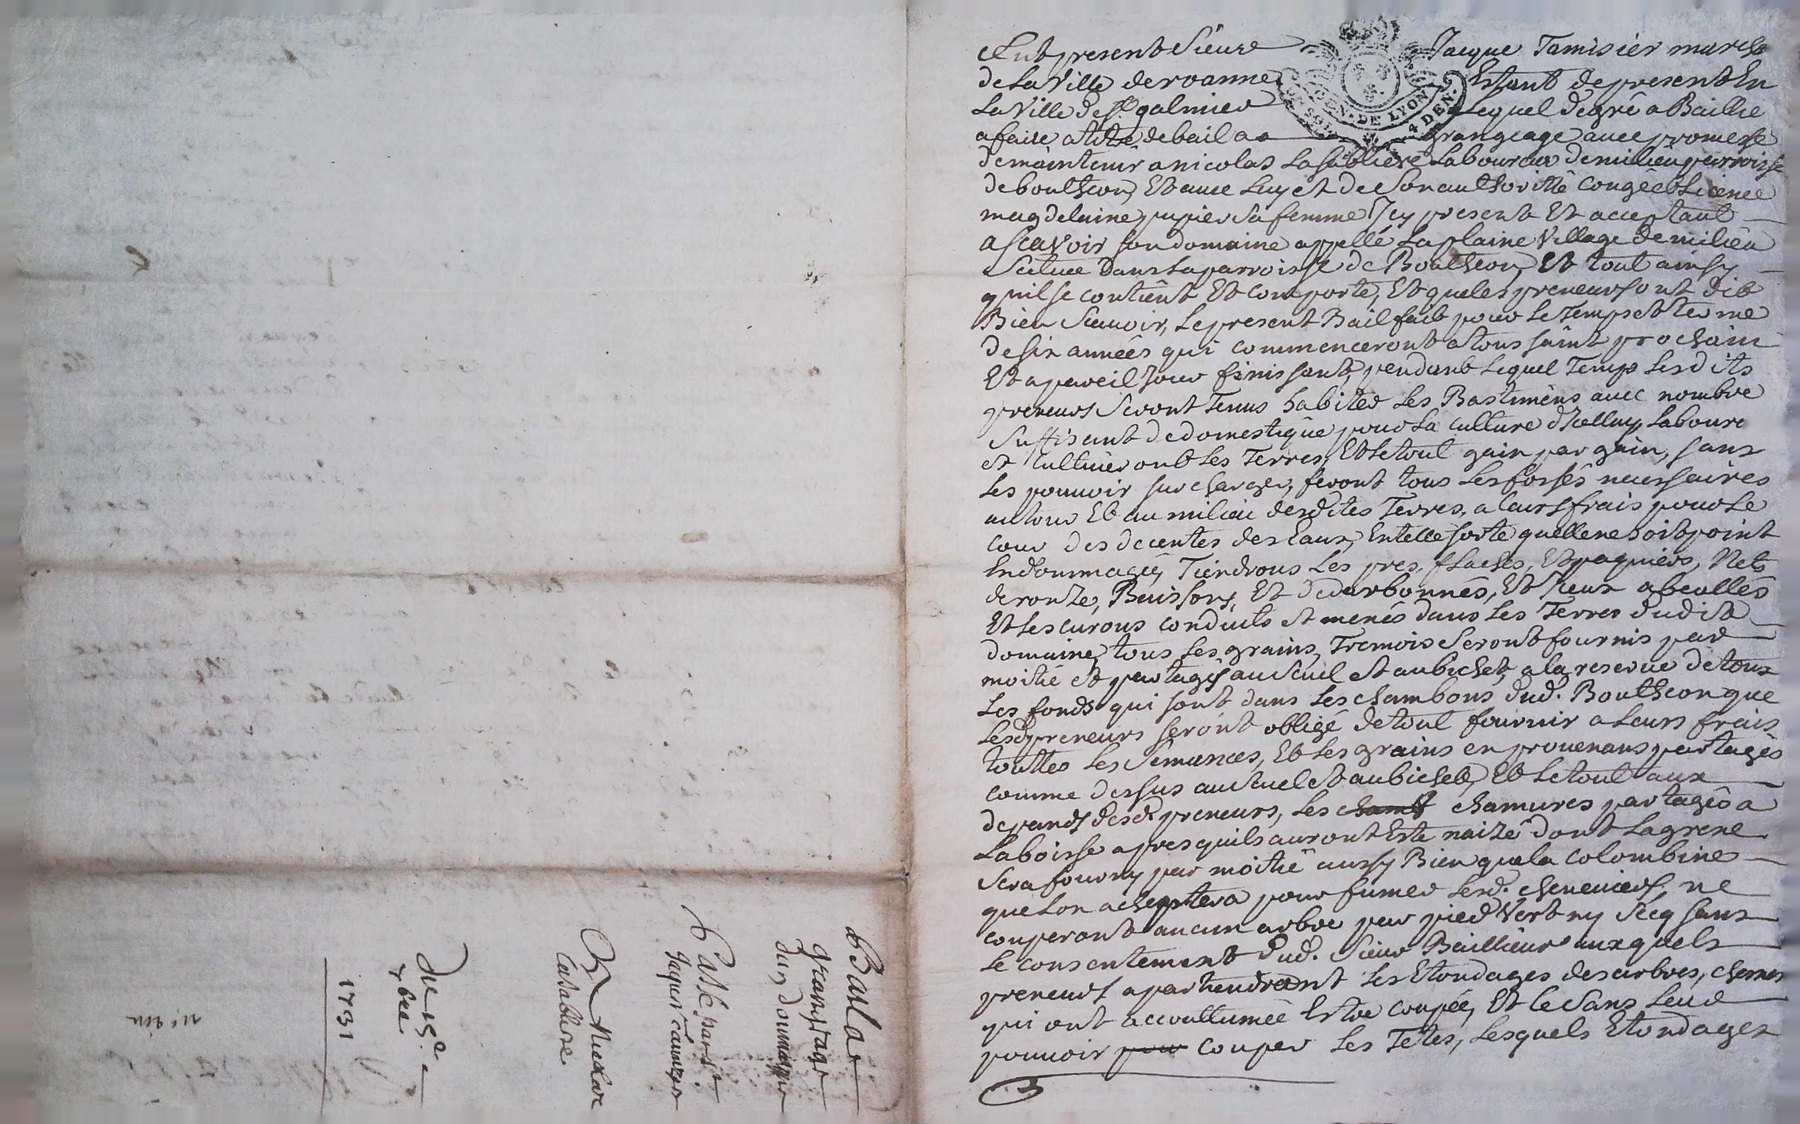 Du 15e
xbre
1731
A Nicolas
Lasabliere
Passé par Sr
Jacques Tamizier
Bail a
grangeage
dun domaine
GEN. DE LYON
4 DEN.
Fut present Sieur Jacque Tamisier march
de La Ville de roanne Estant de present En
La Ville de St galmier Lequel de gré a Baillie
a faire a titre de bail a grangeage avec promesse
de maintenir a nicolas Lasabliere Laboureur de milieu parroisse
de boutheon, Et avec Luy et de Son authorité congée et Licence
magdelaine papier Sa femme Jcy present Et acceptant
a Scavoir Son domaine appellé La plaine Village de milieu
Scitué Dans La parroisse de Boutheon, Et tout ainsy
quil se contient Et comporte, Et que les preneurs ont dit
Bien Scavoir, Le present Bail fait pour Le Temps et terme
de six années qui commenceront a tous saint prochain
Et a pareil Jour finissant, pendant Lequel Temps Lesdits
preneurs Seront Tenus habiter Les Bastimens avec nombre
Suffisant de domestique pour La culture dicelluy Laboure
et Cultiveront Les Terres, Et Le tout gain par gain, sans
Les pouvoir surcharger, feront tous Les fossés necessaires
autour Et au milieu desdites Terres, a Leurs frais pour Le
cour des decentes des Eaux, En telle sorte quelle ne soit point
Endommagée, Tiendrons Les pres, flaches, Et paquiers, Nets
de ronze, Buissons, Et de darbonnés, Et Jceux abeallés
Et Les curons conduits et menés dans Les Terres dudit
domaine, tous Les grains, Tremois Seront fournis par
moitié et partagés au Seuil et au bichet, a la reserve de tous
Les fonds qui sont dans Les chambons dud. Boutheon que
Lesd preneurs seront obligé de tout fournir a Leurs frais
touttes Les Semances, Et Les grains en provenans partagés
comme dessus au Seuil et au bichet, Et Le tout aux
depands desd preneurs, Les chamures partagés a
La boisse apres quils auront Esté naizé dont La grene
Sera fourny par moitié aussy Bien que la colombine
que Lon acheptera pour fumer Lesd. cheneviers, ne
couperont aucun arbre par pied Vert ny Secq sans
Le consentement dud. Sieur Baillieur auxquels
preneurs apartiendront Les Etondages des arbres, chenes
qui ont accoutumée Estre coupée, Et Le Sans Leur
pouvoir couper Les Tetes, Lesquels Etondages